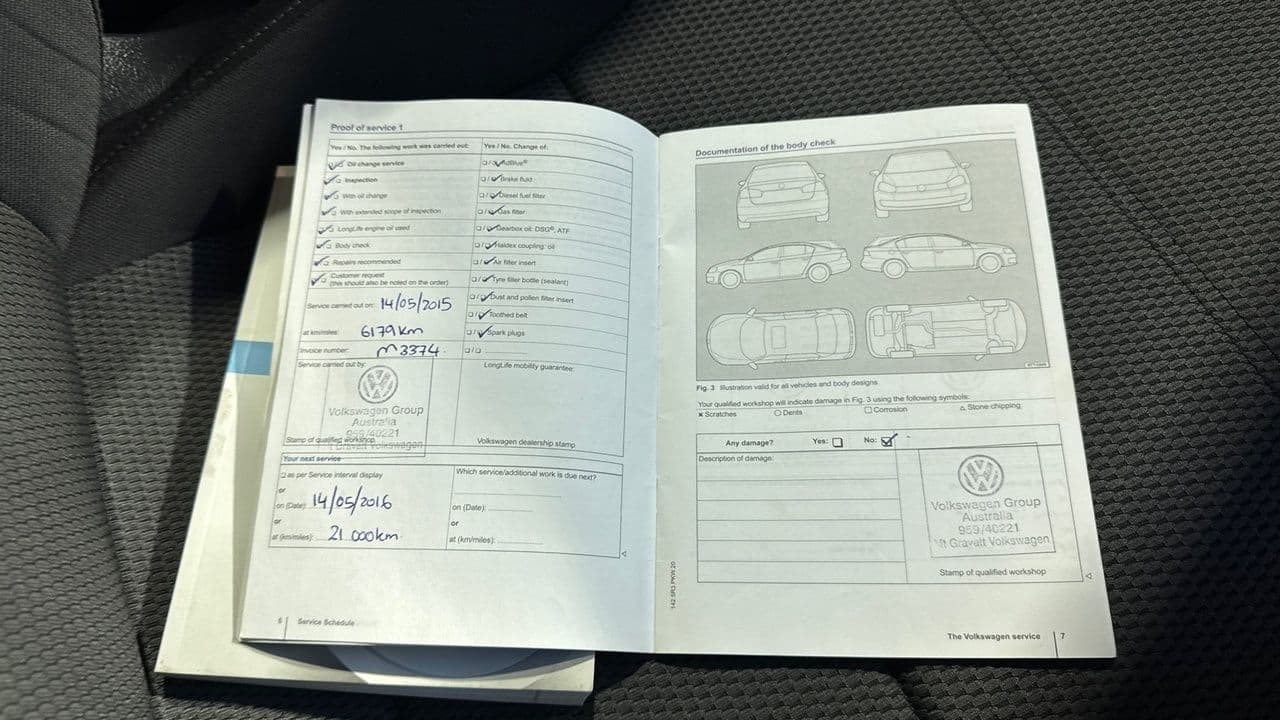 Proof of service 1
Yes / No. The following work was carried out:
Oil change service
Inspection
With oil change
With extended scope of inspection
LongLife engine oil used
Body check
Repairs recommended
Customer request
(this should also be noted on the order)
Service carried out on: 14/05/2015
at km/miles: 6179 km
Invoice number: M3374
Service carried out by:
Volkswagen Group
Australia
959/40221
Mt Gravatt Volkswagen
Stamp of qualified workshop
Yes / No. Change of:
AdBlue®
Brake fluid
Diesel fuel filter
Gas filter
Gearbox oil: DSG®, ATF
Haldex coupling: oil
Air filter insert
Tyre filler bottle (sealant)
Dust and pollen filter insert
Toothed belt
Spark plugs
LongLife mobility guarantee:
Volkswagen dealership stamp
Your next service
as per Service interval display
or
on (Date): 14/05/2016
or
at (km/miles): 21 000km
Which service/additional work is due next?
on (Date):
or
at (km/miles):
6 Service Schedule
Documentation of the body check
Fig. 3 Illustration valid for all vehicles and body designs
Your qualified workshop will indicate damage in Fig. 3 using the following symbols:
× Scratches ○ Dents □ Corrosion △ Stone chipping
Any damage? Yes: No:
Description of damage:
Volkswagen Group
Australia
959/40221
Mt Gravatt Volkswagen
Stamp of qualified workshop
142.5R3.PKW.20
The Volkswagen service 7